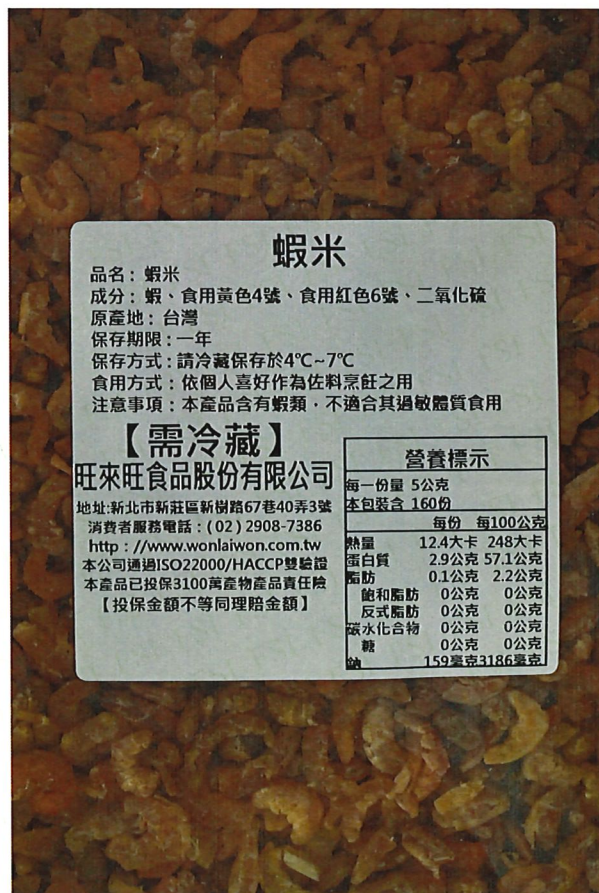 蝦米
品名：蝦米
成分：蝦、食用黃色4號、食用紅色6號、二氧化硫
原產地：台灣
保存期限：一年
保存方式：請冷藏保存於4℃~7℃
食用方式：依個人喜好作為佐料烹飪之用
注意事項：本產品含有蝦類，不適合其過敏體質食用
【需冷藏】
旺來旺食品股份有限公司
地址:新北市新莊區新樹路67巷40弄3號
消費者服務電話：(02)2908-7386
http：//www.wonlaiwon.com.tw
本公司通過ISO22000/HACCP雙驗證
本產品已投保3100萬產物產品責任險
【投保金額不等同理賠金額】
營養標示
每一份量 5公克
本包裝含 160份
每份 每100公克
熱量 12.4大卡 248大卡
蛋白質 2.9公克 57.1公克
脂肪 0.1公克 2.2公克
飽和脂肪 0公克 0公克
反式脂肪 0公克 0公克
碳水化合物 0公克 0公克
糖 0公克 0公克
鈉 159毫克3186毫克